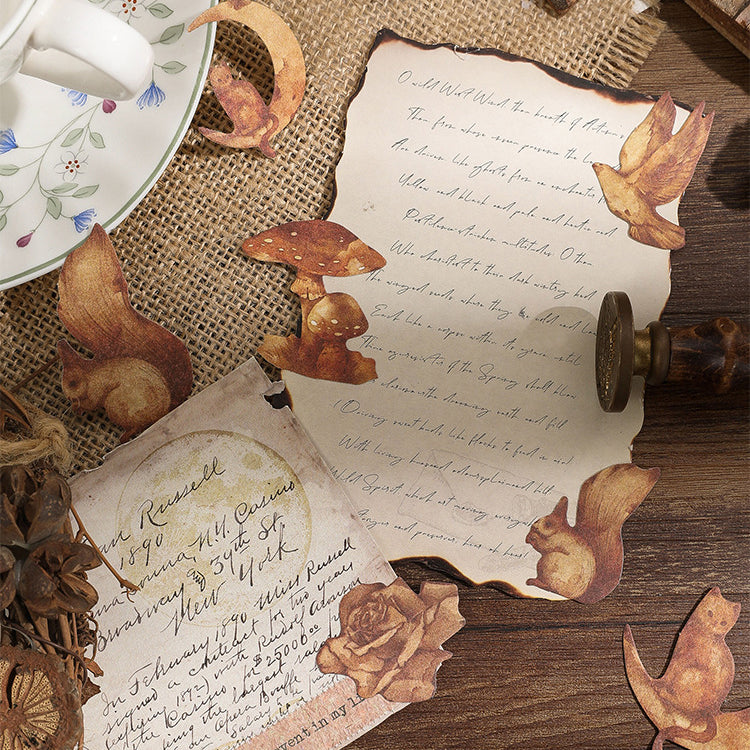 O wild West Wind, thou breath of Autumn's
Thou, from whose unseen presence the
Are driven, like ghosts from an enchanter
Yellow, and black, and pale, and hectic red
Pestilence-stricken multitudes: O thou
Who chariotest to their dark wintry bed
The winged seeds, where they lie cold and
Each like a corpse within its grave, until
Thine azure sister of the Spring shall blow
clarion o'er the dreaming earth, and fill
(Driving sweet buds like flocks to feed in air)
With living hues and odours plain and hill
Wild Spirit, which art moving everywhere
and preserver; hear, oh hear!
Russell
1890
N.Y. Casino
Broadway & 39th St.
New York
In February, 1890 Miss Russell
signed a contract for two years
1892) with Rudolf Aronson
the Casino for $25000.00
being the largest
an Opera Bouffe
Salary
event in my li